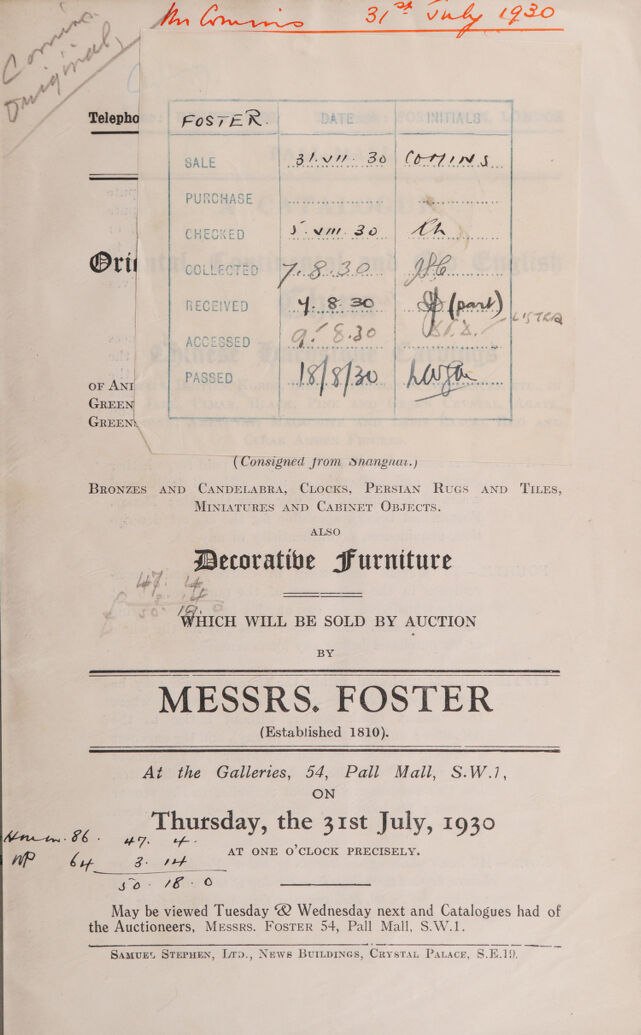 Mr Comins 31st July 1930
Comins
Original
Telepho
FOSTER. DATE INITIALS
SALE 31.VII.30 COMINS
PURCHASE
CHECKED 5.VIII.30
COLLECTED 7.8.30
RECEIVED 7.8.30 (part)
ACCESSED 9.8.30
PASSED 18/8/30
Ori
OF ANI
GREEN
GREEN
(Consigned from Shanghai.)
BRONZES AND CANDELABRA, CLOCKS, PERSIAN RUGS AND TILES,
MINIATURES AND CABINET OBJECTS.
ALSO
Decorative Furniture
47. 4
50. 18. 0
WHICH WILL BE SOLD BY AUCTION
BY
MESSRS. FOSTER
(Established 1810).
At the Galleries, 54, Pall Mall, S.W.1,
ON
Thursday, the 31st July, 1930
86. 47. 4.
AT ONE O'CLOCK PRECISELY.
64 3. 14
50. 18. 0
May be viewed Tuesday & Wednesday next and Catalogues had of
the Auctioneers, MESSRS. FOSTER 54, Pall Mall, S.W.1.
SAMUEL STEPHEN, LTD., NEWS BUILDINGS, CRYSTAL PALACE, S.E.19.